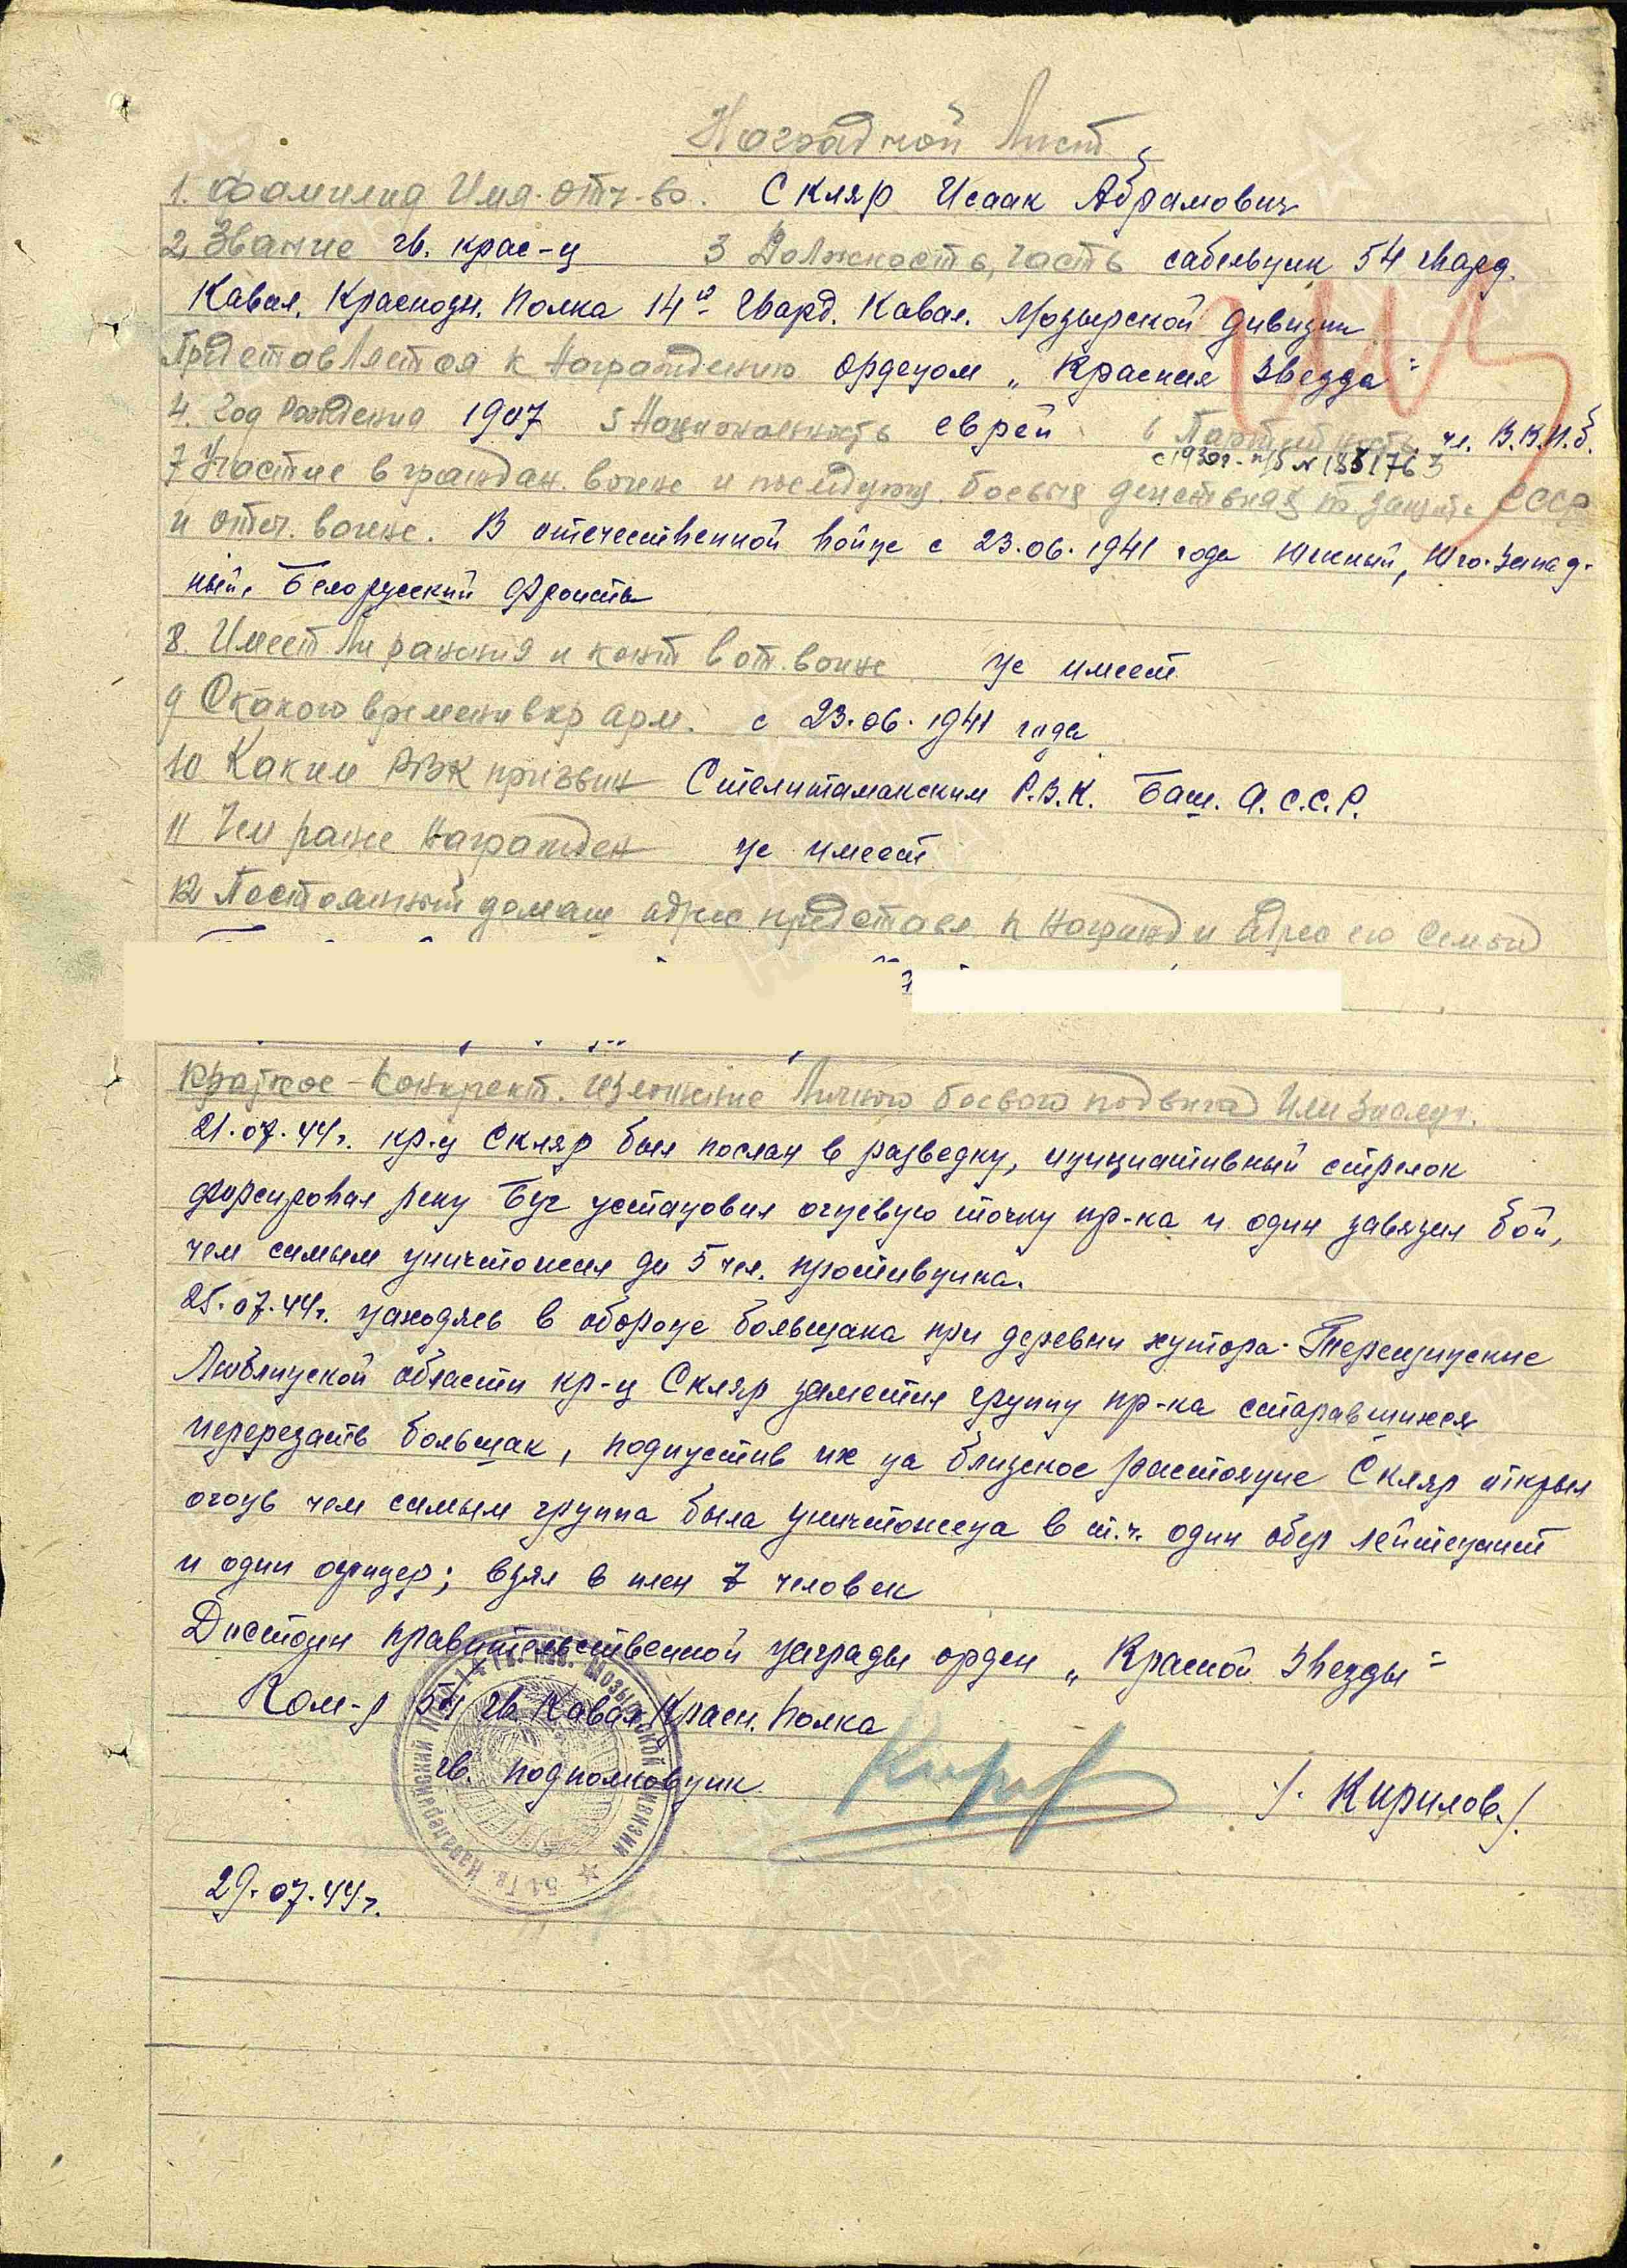 Наградной Лист
1. Фамилия Имя. отч-во. Скляр Исаак Абрамович
2 Звание гв. крас-ц 3 Должность, часть сабельник 54 Гвард.
Кавал. Краснозн. Полка 14й Гвард. Кавал. Мозырской дивизии
Представляется к награждению орденом „Красная Звезда"
4. Год рождения 1907 5 Национальность еврей 6 Партийность чл. В.К.П.б.
с 1930г. п/б № 1851763
7 Участие в граждан. войне и последующ. боевых действиях по защите СССР
и отеч. войне. В отечественной войне с 23.06.1941 года Южный, Юго-Запад-
ный, Белорусский Фронты
8. Имеет ли ранения и конт в от. войне не имеет
9 С какого времени в кр арм. с 23.06.1941 года
10 Каким РВК призван Стелитамакским Р.В.К. Баш. А.С.С.Р.
11 Чем ранее награжден не имеет
12 Постоянный домаш адрес представл. к наград и адрес его семьи
Краткое-конкрект. изложение личного боевого подвига или заслуг.
21.07.44г. кр-ц Скляр был послан в разведку, инициативный стрелок
форсировал реку Буг установил огневую точку пр-ка и один завязал бой,
чем самым уничтожил до 5 чел. противника.
25.07.44г. находясь в обороне большака при деревни хутора
Люблинской области кр-ц Скляр заметил группу пр-ка старавшихся
перерезать большак, подпустив их на близкое растояние Скляр открыл
огонь чем самым группа была уничтожена в т.ч. один обер лейтенант
и один офицер; взял в плен 7 человек
Достоин правительственной награды орден „Красной Звезды"
Ком-р 54 гв. Кавал. Красн. Полка
гв. подполковник /. Кирилов./
54 Гв. Кавалерийский Мозырской дивизии
29.07.44г.
ПАМЯТЬ
НАРОДА